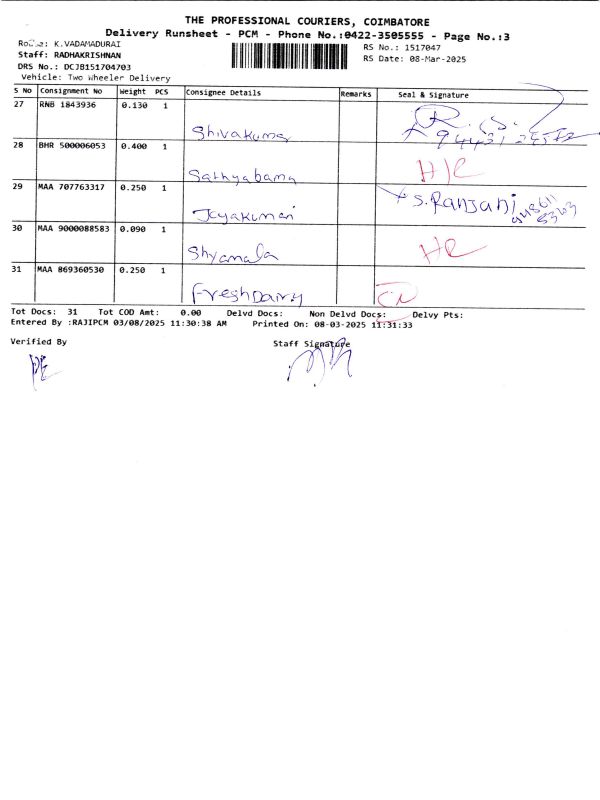 THE PROFESSIONAL COURIERS, COIMBATORE
Delivery Runsheet - PCM - Phone No.:0422-3505555 - Page No.:3
K.VADAMADURAI
RS No.: 1517047
Staff: RADHAKRISHNAN
RS Date: 08-Mar-2025
DRS No.: DCJB151704703
Vehicle: Two Wheeler Delivery
S No Consignment No Weight PCS Consignee Details Remarks Seal & Signature
27 RNB 1843936 0.130 1
Shivakumar
28 BHR 500006053 0.400 1
Sathyabama H/C
29 MAA 707763317 0.250 1
Jeyakumari S.Ranjani
30 MAA 9000088583 0.090 1
Shyamala
31 MAA 869360530 0.250 1
FreshDairy
Tot Docs: 31 Tot COD Amt: 0.00 Delvd Docs: Non Delvd Docs: Delvy Pts:
Entered By :RAJIPCM 03/08/2025 11:30:38 AM Printed On: 08-03-2025 11:31:33
Verified By Staff Signature